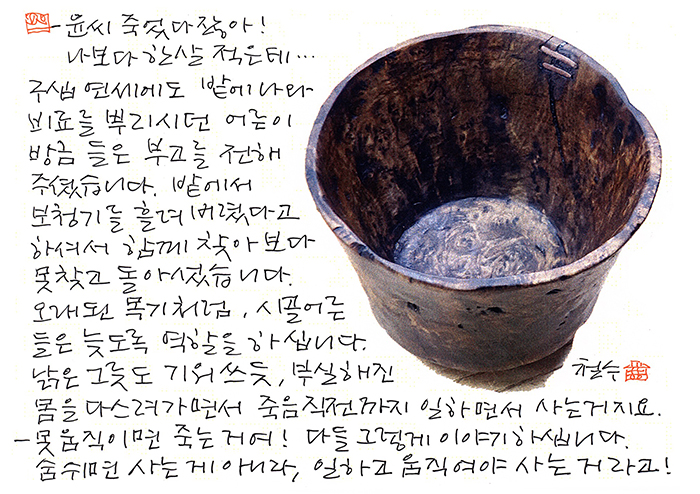 - 윤씨 죽었다잖아!
나보다 한살 적은데…
구십 연세에도 밭에 나와
비료를 뿌리시던 어른이
방금 들은 부고를 전해
주셨습니다. 밭에서
보청기를 흘려 버렸다고
하셔서 함께 찾아 보다
못찾고 돌아섰습니다.
오래된 목기처럼, 시골어른
들은 늦도록 역할을 하십니다.
낡은 그릇도 기워 쓰듯, 부실해진
몸을 다스려가면서 죽음직전까지 일하면서 사는거지요.
- 못움직이면 죽는거여! 다들 그렇게 이야기하십니다.
숨쉬면 사는게 아니라, 일하고 움직여야 사는거라고!
철수